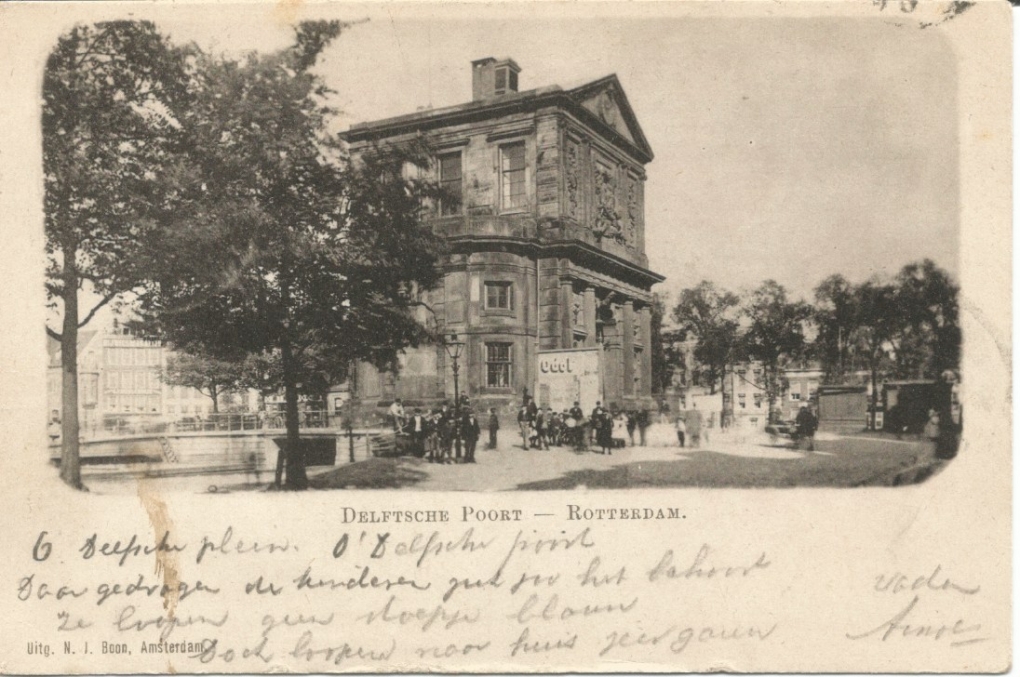 Odol
DELFTSCHE POORT — ROTTERDAM.
O Delfsche plein. O' Delfsche poort
Daar gedragen de kinderen zich zoo het behoort
Ze loopen geen stoepje blauw
Doch loopen naar huis zeer gauw
vader
Uitg. N. J. Boon, Amsterdam.